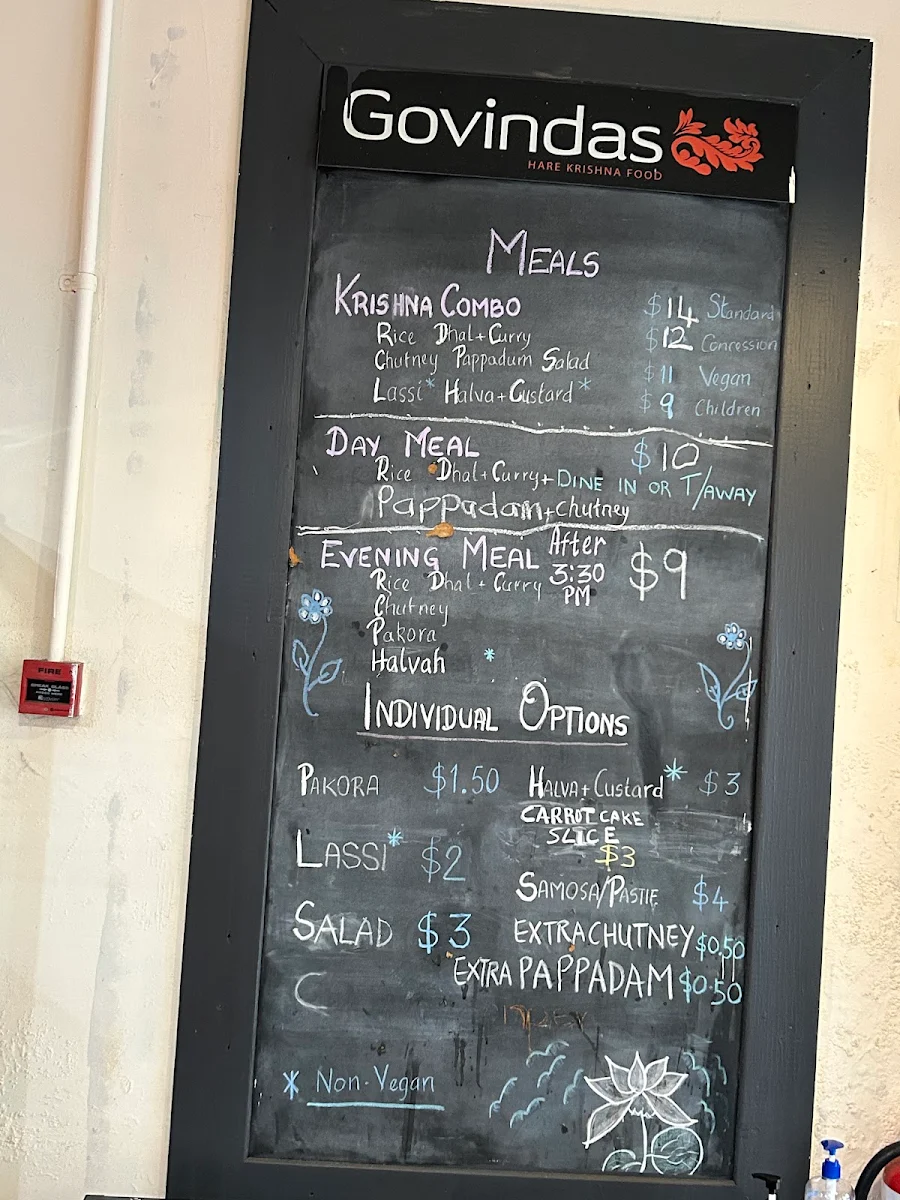 Govindas
HARE KRISHNA FOOD
MEALS
KRISHNA COMBO $14 Standard
Rice Dhal+Curry $12 Concession
Chutney Pappadum Salad $11 Vegan
Lassi* Halva+Custard* $9 Children
DAY MEAL $10
Rice Dhal+Curry+ DINE IN OR T/AWAY
Pappadam+chutney
EVENING MEAL After 3:30 PM $9
Rice Dhal+Curry
Chutney
Pakora
Halvah *
INDIVIDUAL OPTIONS
PAKORA $1.50
LASSI* $2
SALAD $3
C
HALVA+Custard* $3
CARROT CAKE
SLICE
$3
SAMOSA/PASTIE $4
EXTRA CHUTNEY $0.50
EXTRA PAPPADAM $0.50
* Non-Vegan
FIRE